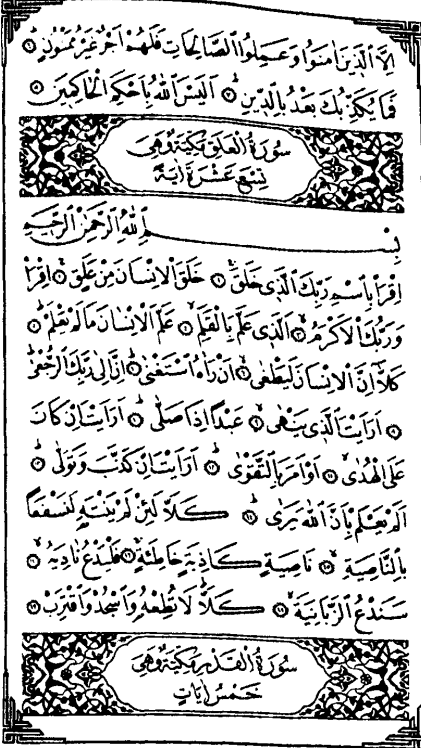 اِلَّا الَّذِينَ اٰمَنُوا وَعَمِلُوا الصَّالِحَاتِ فَلَهُمْ اَجْرٌ غَيْرُ مَمْنُونٍ ۝٦
فَمَا يُكَذِّبُكَ بَعْدُ بِالدِّينِ ۝٧ اَلَيْسَ اللّٰهُ بِاَحْكَمِ الْحَاكِمِينَ ۝٨
سُورَةُ الْعَلَقِ مَكِّيَّةٌ وَهِيَ
تِسْعَ عَشْرَةَ اٰيَةً
بِسْمِ اللّٰهِ الرَّحْمٰنِ الرَّحِيمِ
اِقْرَأْ بِاسْمِ رَبِّكَ الَّذِي خَلَقَ ۝١ خَلَقَ الْاِنْسَانَ مِنْ عَلَقٍ ۝٢ اِقْرَأْ
وَرَبُّكَ الْاَكْرَمُ ۝٣ اَلَّذِي عَلَّمَ بِالْقَلَمِ ۝٤ عَلَّمَ الْاِنْسَانَ مَا لَمْ يَعْلَمْ ۝٥
كَلَّا اِنَّ الْاِنْسَانَ لَيَطْغٰى ۝٦ اَنْ رَاٰهُ اسْتَغْنٰى ۝٧ اِنَّ اِلٰى رَبِّكَ الرُّجْعٰى
۝٨ اَرَاَيْتَ الَّذِي يَنْهٰى ۝٩ عَبْدًا اِذَا صَلّٰى ۝١٠ اَرَاَيْتَ اِنْ كَانَ
عَلَى الْهُدٰى ۝١١ اَوْ اَمَرَ بِالتَّقْوٰى ۝١٢ اَرَاَيْتَ اِنْ كَذَّبَ وَتَوَلّٰى ۝١٣
اَلَمْ يَعْلَمْ بِاَنَّ اللّٰهَ يَرٰى ۝١٤ كَلَّا لَئِنْ لَمْ يَنْتَهِ لَنَسْفَعًا
بِالنَّاصِيَةِ ۝١٥ نَاصِيَةٍ كَاذِبَةٍ خَاطِئَةٍ ۝١٦ فَلْيَدْعُ نَادِيَهُ ۝١٧
سَنَدْعُ الزَّبَانِيَةَ ۝١٨ كَلَّا لَا تُطِعْهُ وَاسْجُدْ وَاقْتَرِبْ ۝١٩
سُورَةُ الْقَدْرِ مَكِّيَّةٌ وَهِيَ
خَمْسُ اٰيَاتٍ